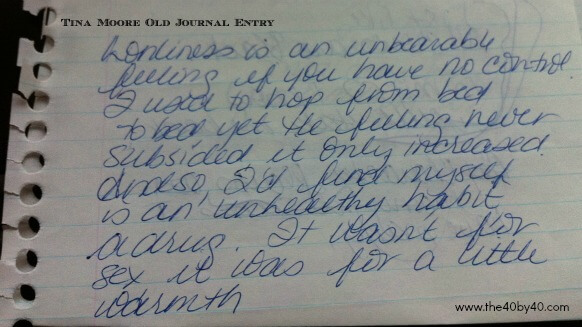 Tina Moore Old Journal Entry
Lonliness is an unbearable
feeling if you have no control.
I used to hop from bed
to bed, yet the feeling never
subsided it only increased.
And so, I'd find myself
is an unhealthy habit
a drug. It wasn't for
sex it was for a little
warmth
www.the40by40.com